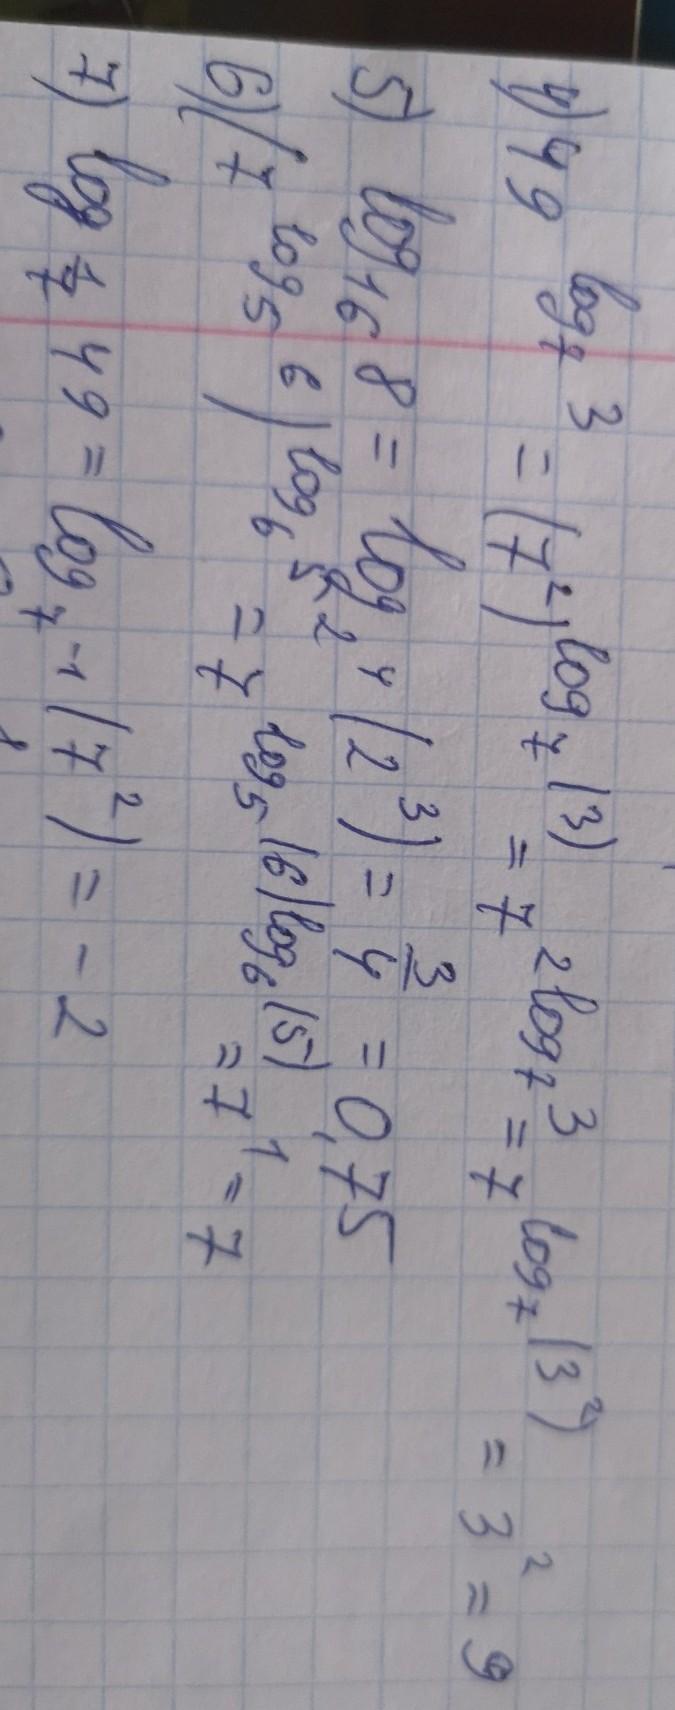 4) 49^{log_7 3} = (7^2)^{log_7 (3)} = 7^{2 log_7 3} = 7^{log_7 (3^2)} = 3^2 = 9
5) log_{16} 8 = log_{2^4} (2^3) = \frac{3}{4} = 0,75
6) (7^{log_5 6})^{log_6 5} = 7^{log_5 (6) log_6 (5)} = 7^1 = 7
7) log_{\frac{1}{7}} 49 = log_{7^{-1}} (7^2) = -2